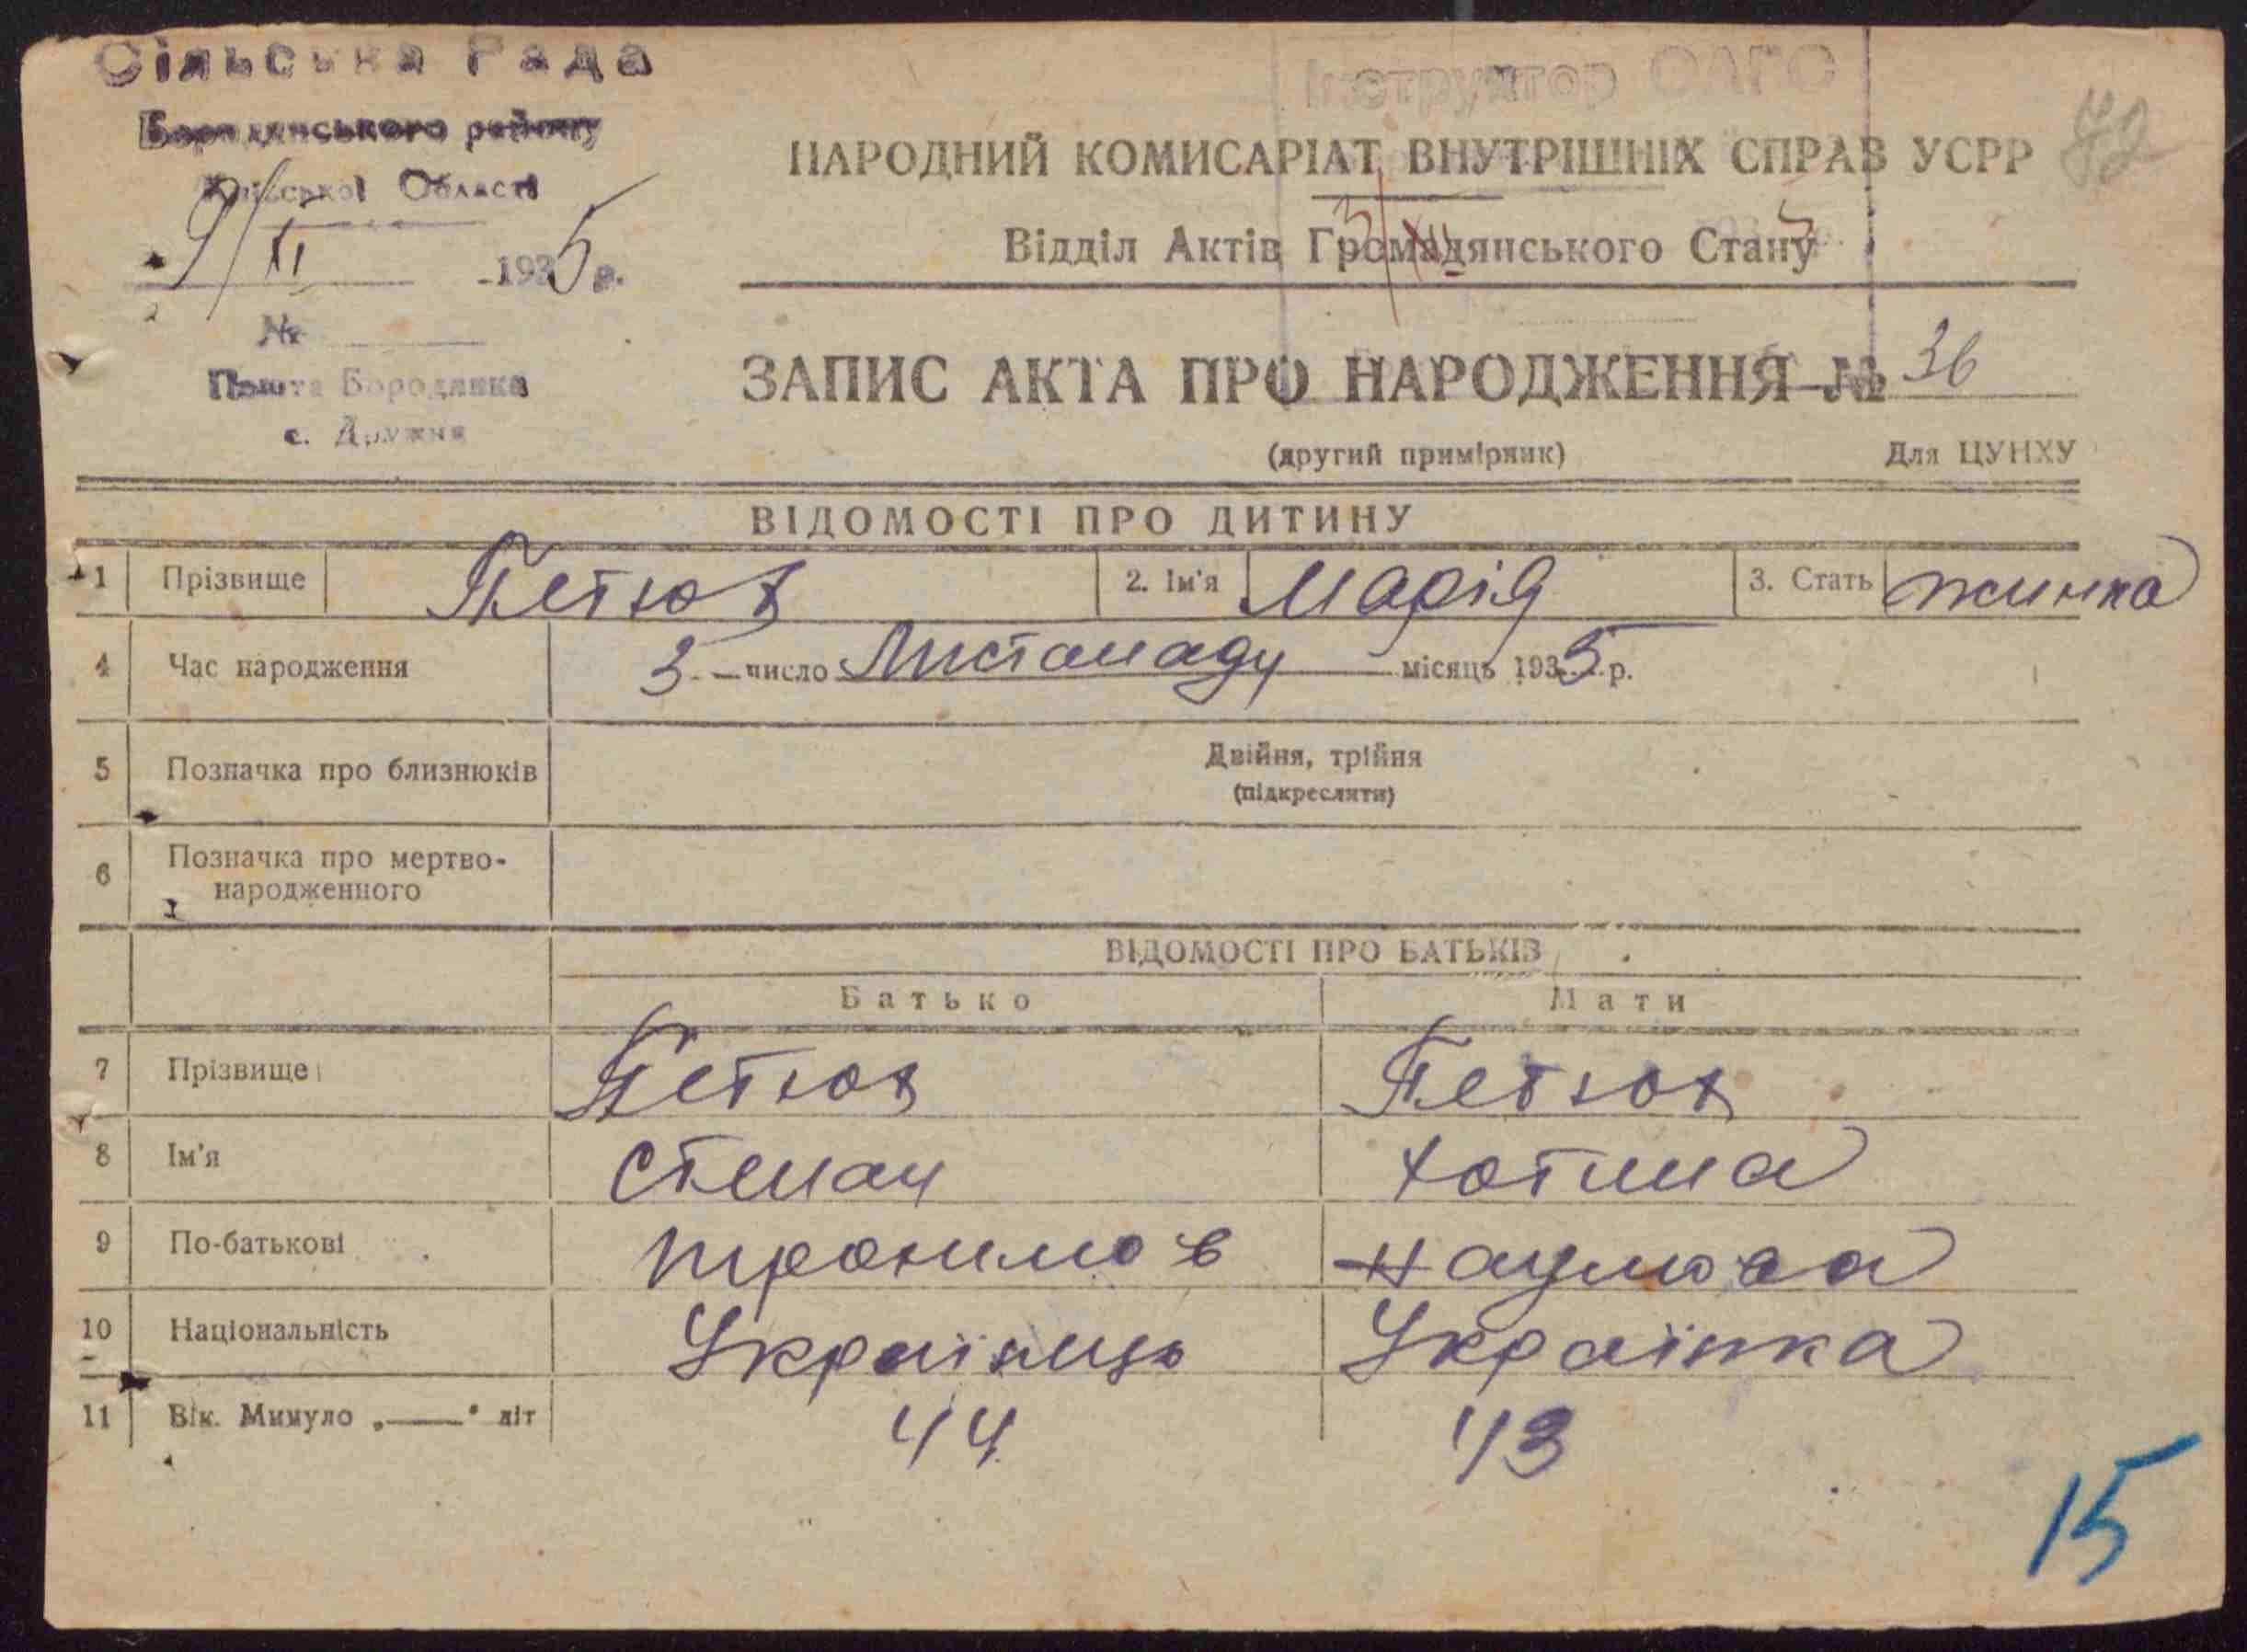 Сільська Рада
Інструктор ОАГС
Бородянського району
42
Київської Області
НАРОДНИЙ КОМИСАРІАТ ВНУТРІШНІХ СПРАВ УСРР
9/XI 1935 р.
3/XII 5
Відділ Актів Громадянського Стану
№
ЗАПИС АКТА ПРО НАРОДЖЕННЯ № 36
Пошта Бородянка
с. Дружня
(другий примірник) Для ЦУНХУ
ВІДОМОСТІ ПРО ДИТИНУ
1 Прізвище Петюх 2. Ім'я Марія 3. Стать жинка
4 Час народження 3 число Листопаду місяць 1935 р.
5 Позначка про близнюків Двійня, трійня
(підкреслити)
6 Позначка про мертво-
народженного
ВІДОМОСТІ ПРО БАТЬКІВ
Батько Мати
7 Прізвище Петюх Петюх
8 Ім'я Степан Хотина
9 По-батькові Трохимов Наумова
10 Національність Українець Українка
11 Вік. Минуло „—" літ 44 43
15